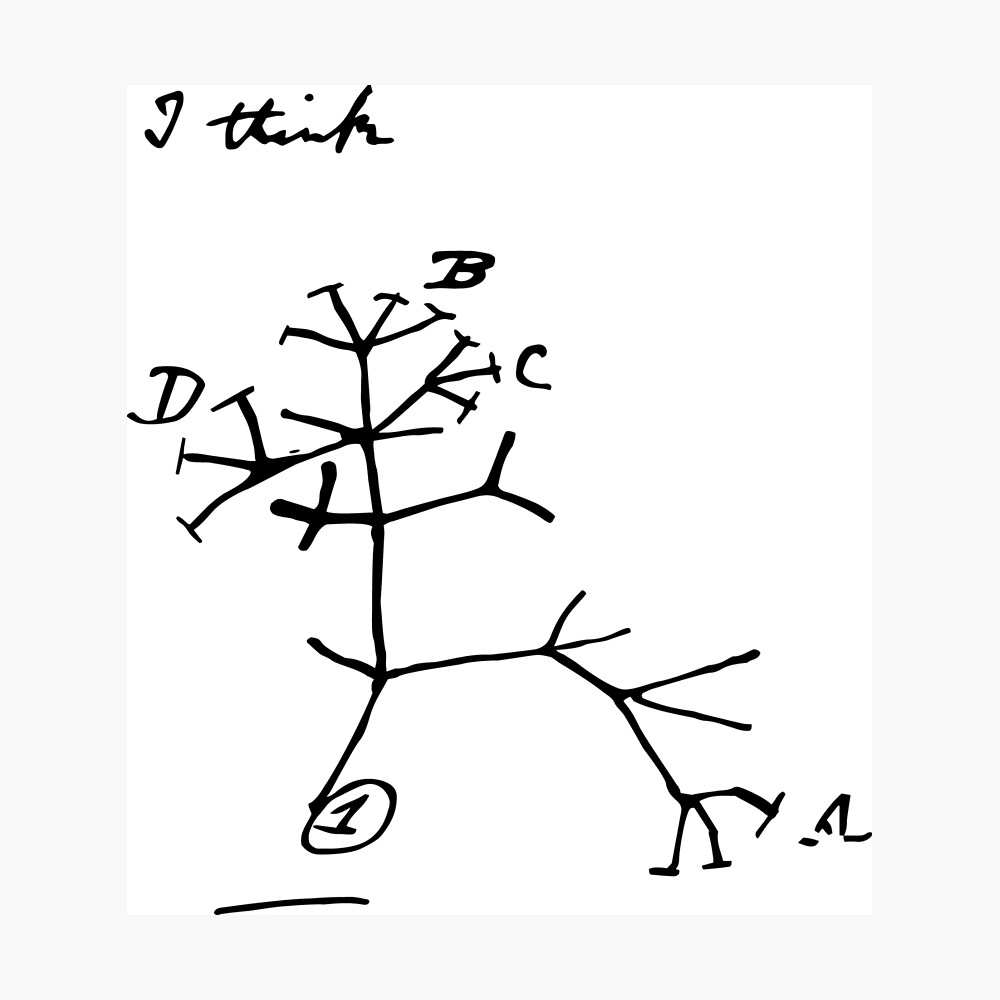 I think
B
C
D
1
A